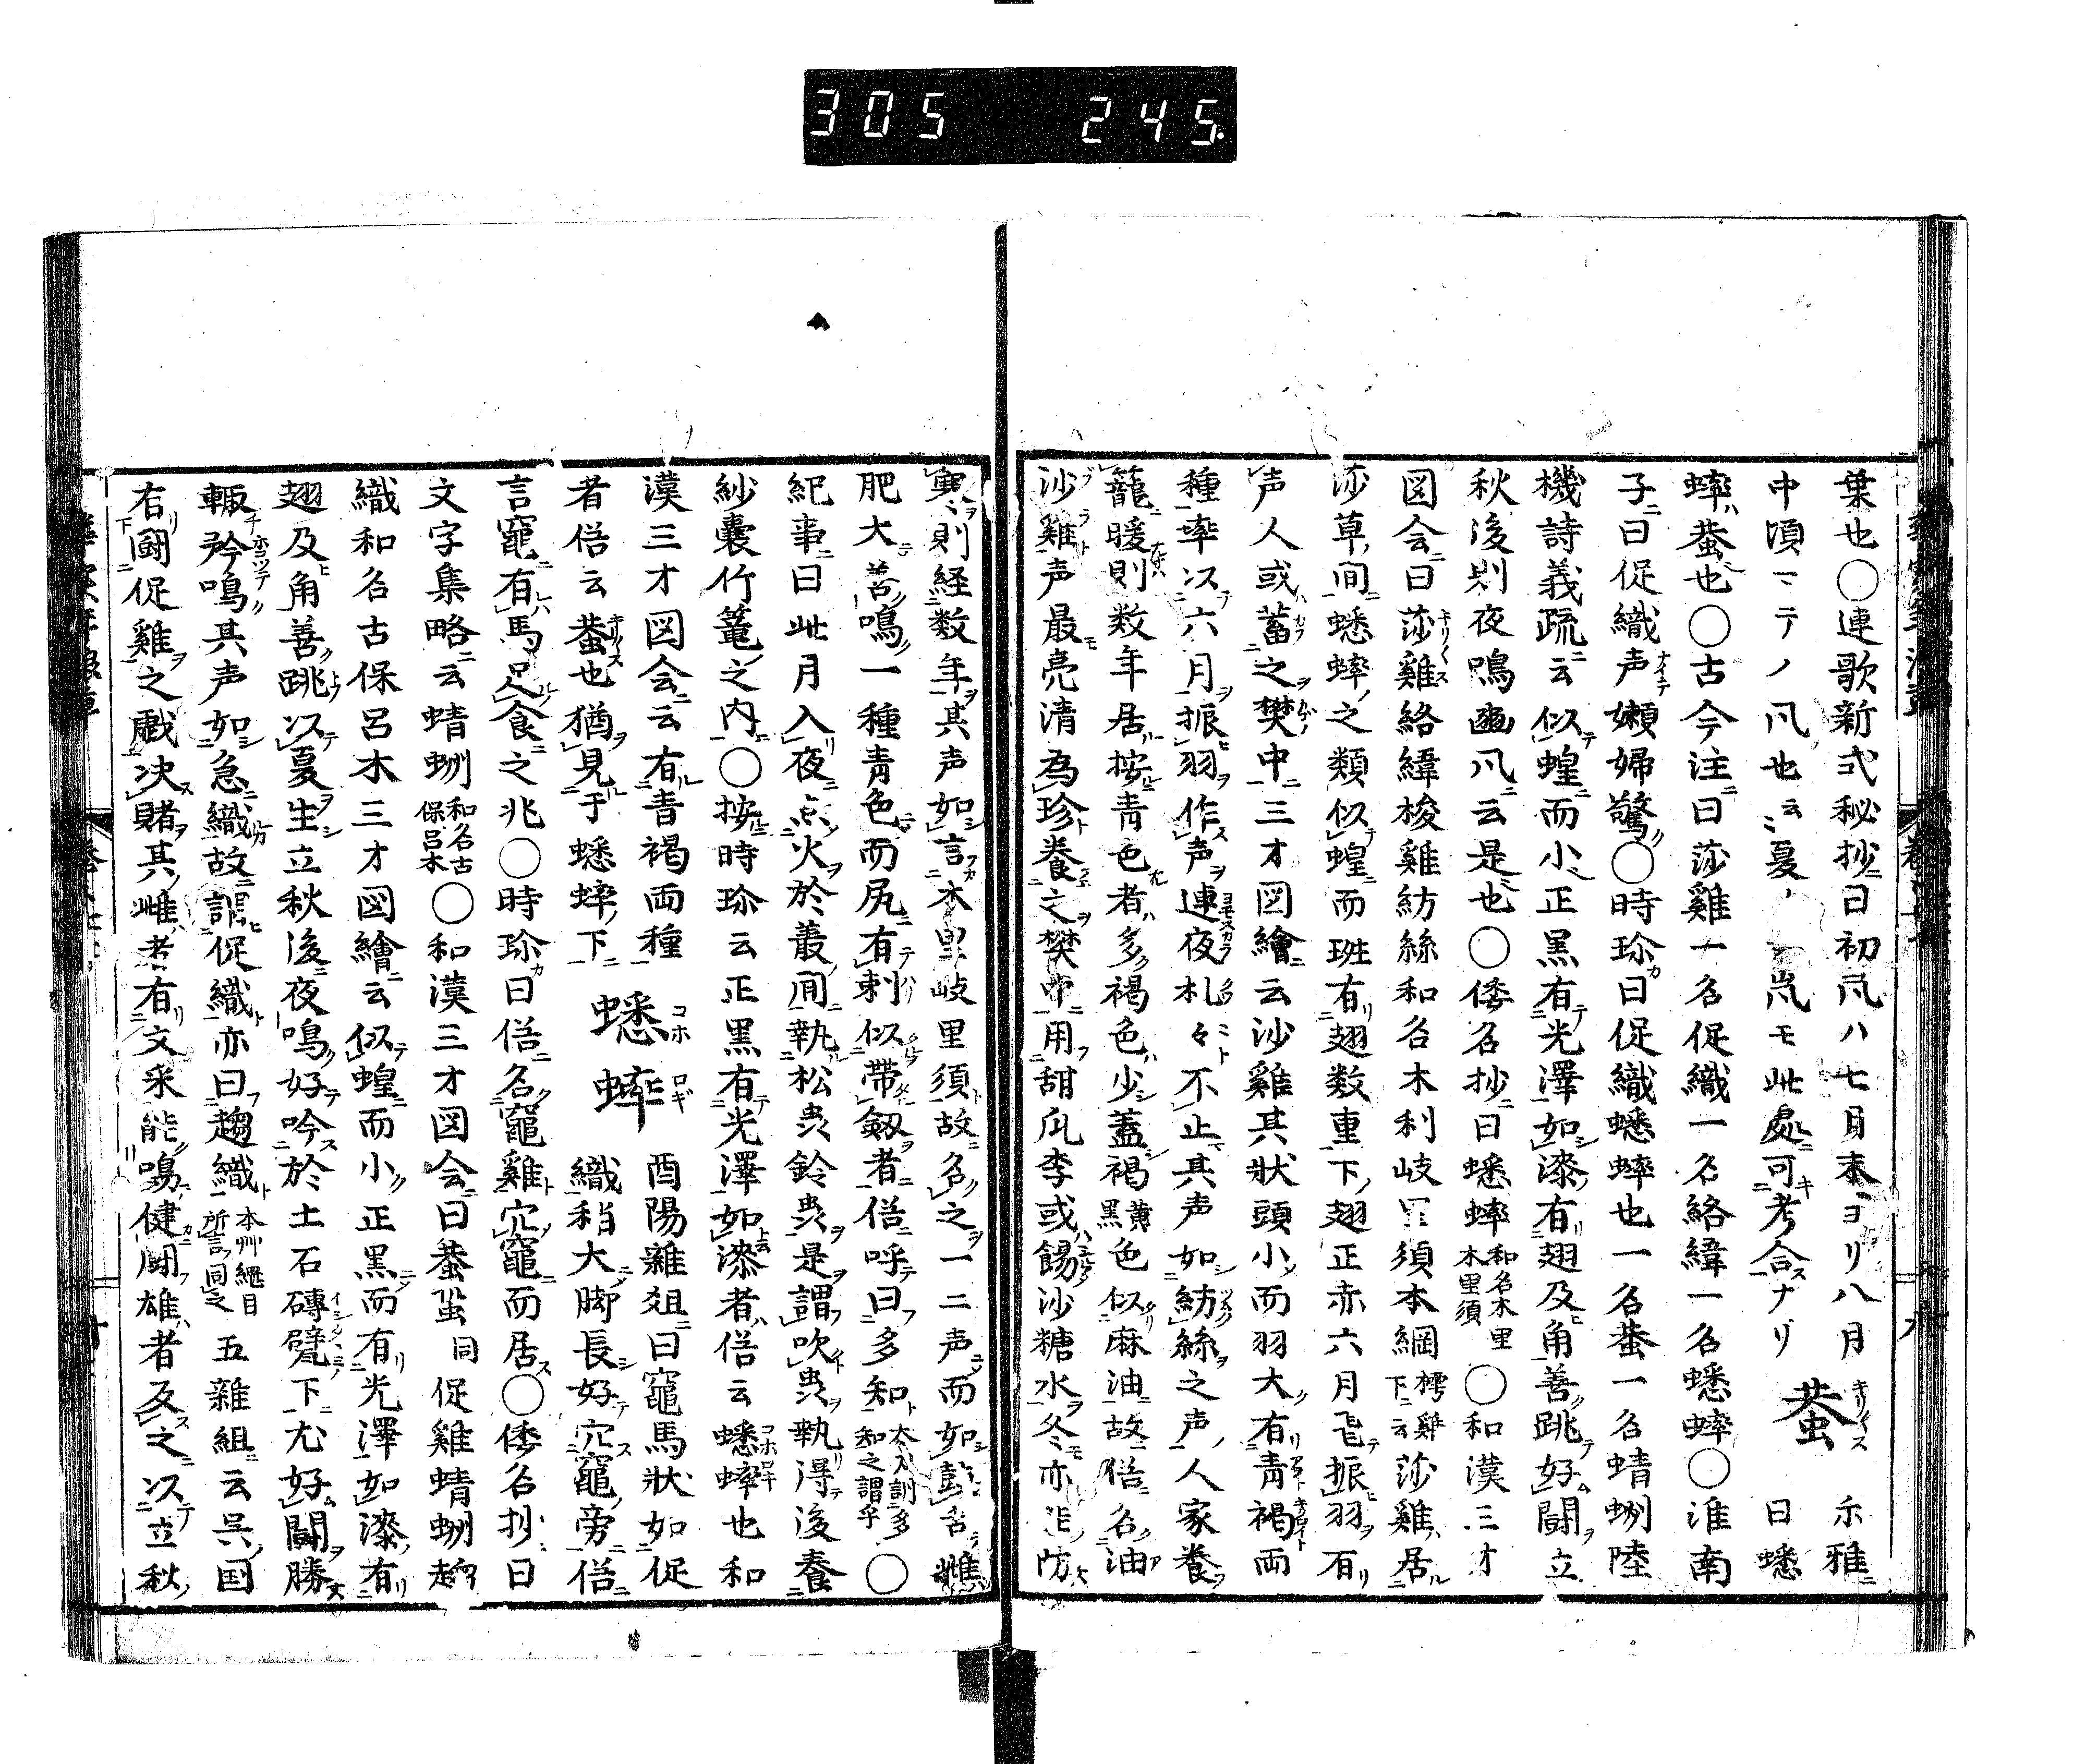 305 245.
葉也○連歌新式秘抄ニ曰初凩ハ七月末ヨリ八月
中頃マテノ凩也云〻夏ノ凩モ此処ニ可考合スナリ 蛬 尓雅ニ曰蟋
蟀ハ蛬也○古今注ニ曰莎雞一名促織一名絡緯一名蟋蟀○淮南
子ニ曰促織声嬾婦驚○時珍カ曰促織蟋蟀也一名蛬一名蜻蛚陸
機詩義疏ニ云似蝗而小正黒有光澤如漆有翅及角善跳好闘立
秋後則夜鳴豳凡云是也○倭名抄ニ曰蟋蟀和名木里木里須○和漢三才
図会ニ曰莎雞絡緯梭雞紡絲和名木利岐里須本綱樗雞下ニ云莎雞居
莎草間蟋蟀之類似蝗而班有翅数重下翅正赤六月飛振羽有
声人或蓄之樊中三才図繪云沙雞其状頭小而羽大有青褐両
種率以六月振羽作声連夜札々不止其声如紡絲之声人家養
籠暖則数年居按青色者多褐色少蓋褐黄黒色似麻油故俗名油
沙雞声最亮清為珍養之樊中用甜瓜李或餳沙糖水冬亦能防
寒則経数年其声如言木里岐里須故名之一二声而如彭舌雌
肥大不鳴一種青色而尻有刺似帯釼者俗呼曰多知太刀訓多知之謂乎○
紀事ニ曰此月入夜点火於叢間執松虫鈴虫是謂吹虫執得後養
紗嚢竹篭之内○按時珍云正黒有光澤如漆者俗云蟋蟀也和
漢三才図会ニ云有青褐両種
者俗云蛬也猶見于蟋蟀下 蟋蟀 酉陽雑俎ニ曰竈馬状如促
織稍大脚長好穴竈旁俗
言竈有馬足食之兆○時珍曰俗名竈雞穴竈而居○倭名抄曰
文字集略ニ云蜻蛚和名古保呂木○和漢三才図会曰蛬蛩同促雞蜻蛚趨
織和名古保呂木三才図繪ニ云似蝗而小正黒而有光澤如漆有
翅及角善跳以夏生立秋後夜鳴好吟於土石磚甓下尤好闘勝
輙矜鳴其声如急織故謂促織亦曰趨織本艸綱目所言同之五雜組ニ云呉国
右闘促雞之戯决賭其雌者有文采能鳴健闘雄者反之以立秋